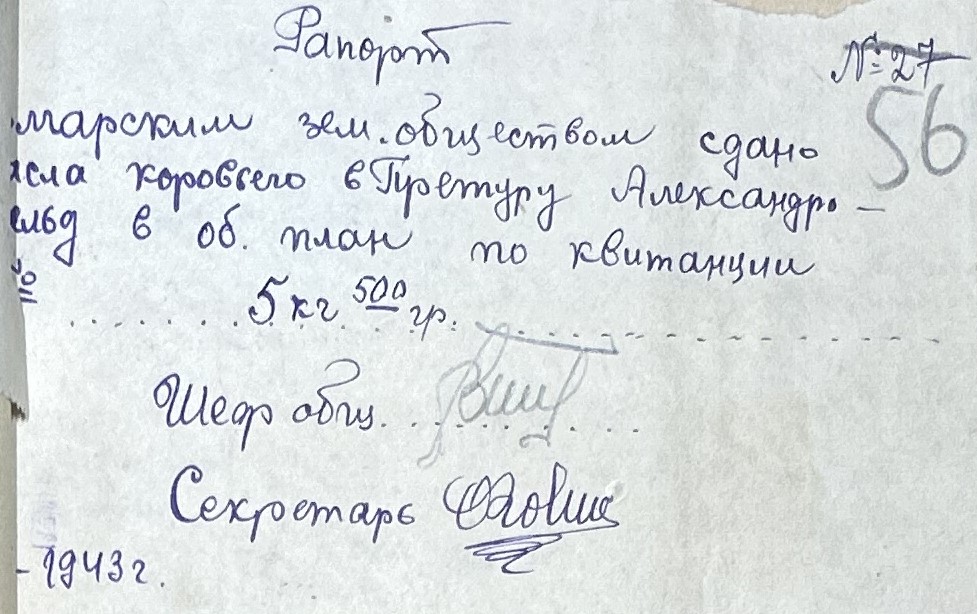 Рапорт
№ 27
56
марским зем. обществом сдано
коровьего в Претуру Александро-
в об. план по квитанции
5 кг 500 гр.
Шеф общ.
Секретарь
- 1943 г.